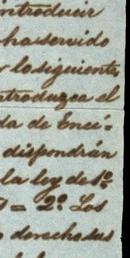 introducir
ha servido
r lo siguiente,
ntroduzca el
da de Enci=
dispondrán
la ley de 1º
= 2º. Los
o derechadas